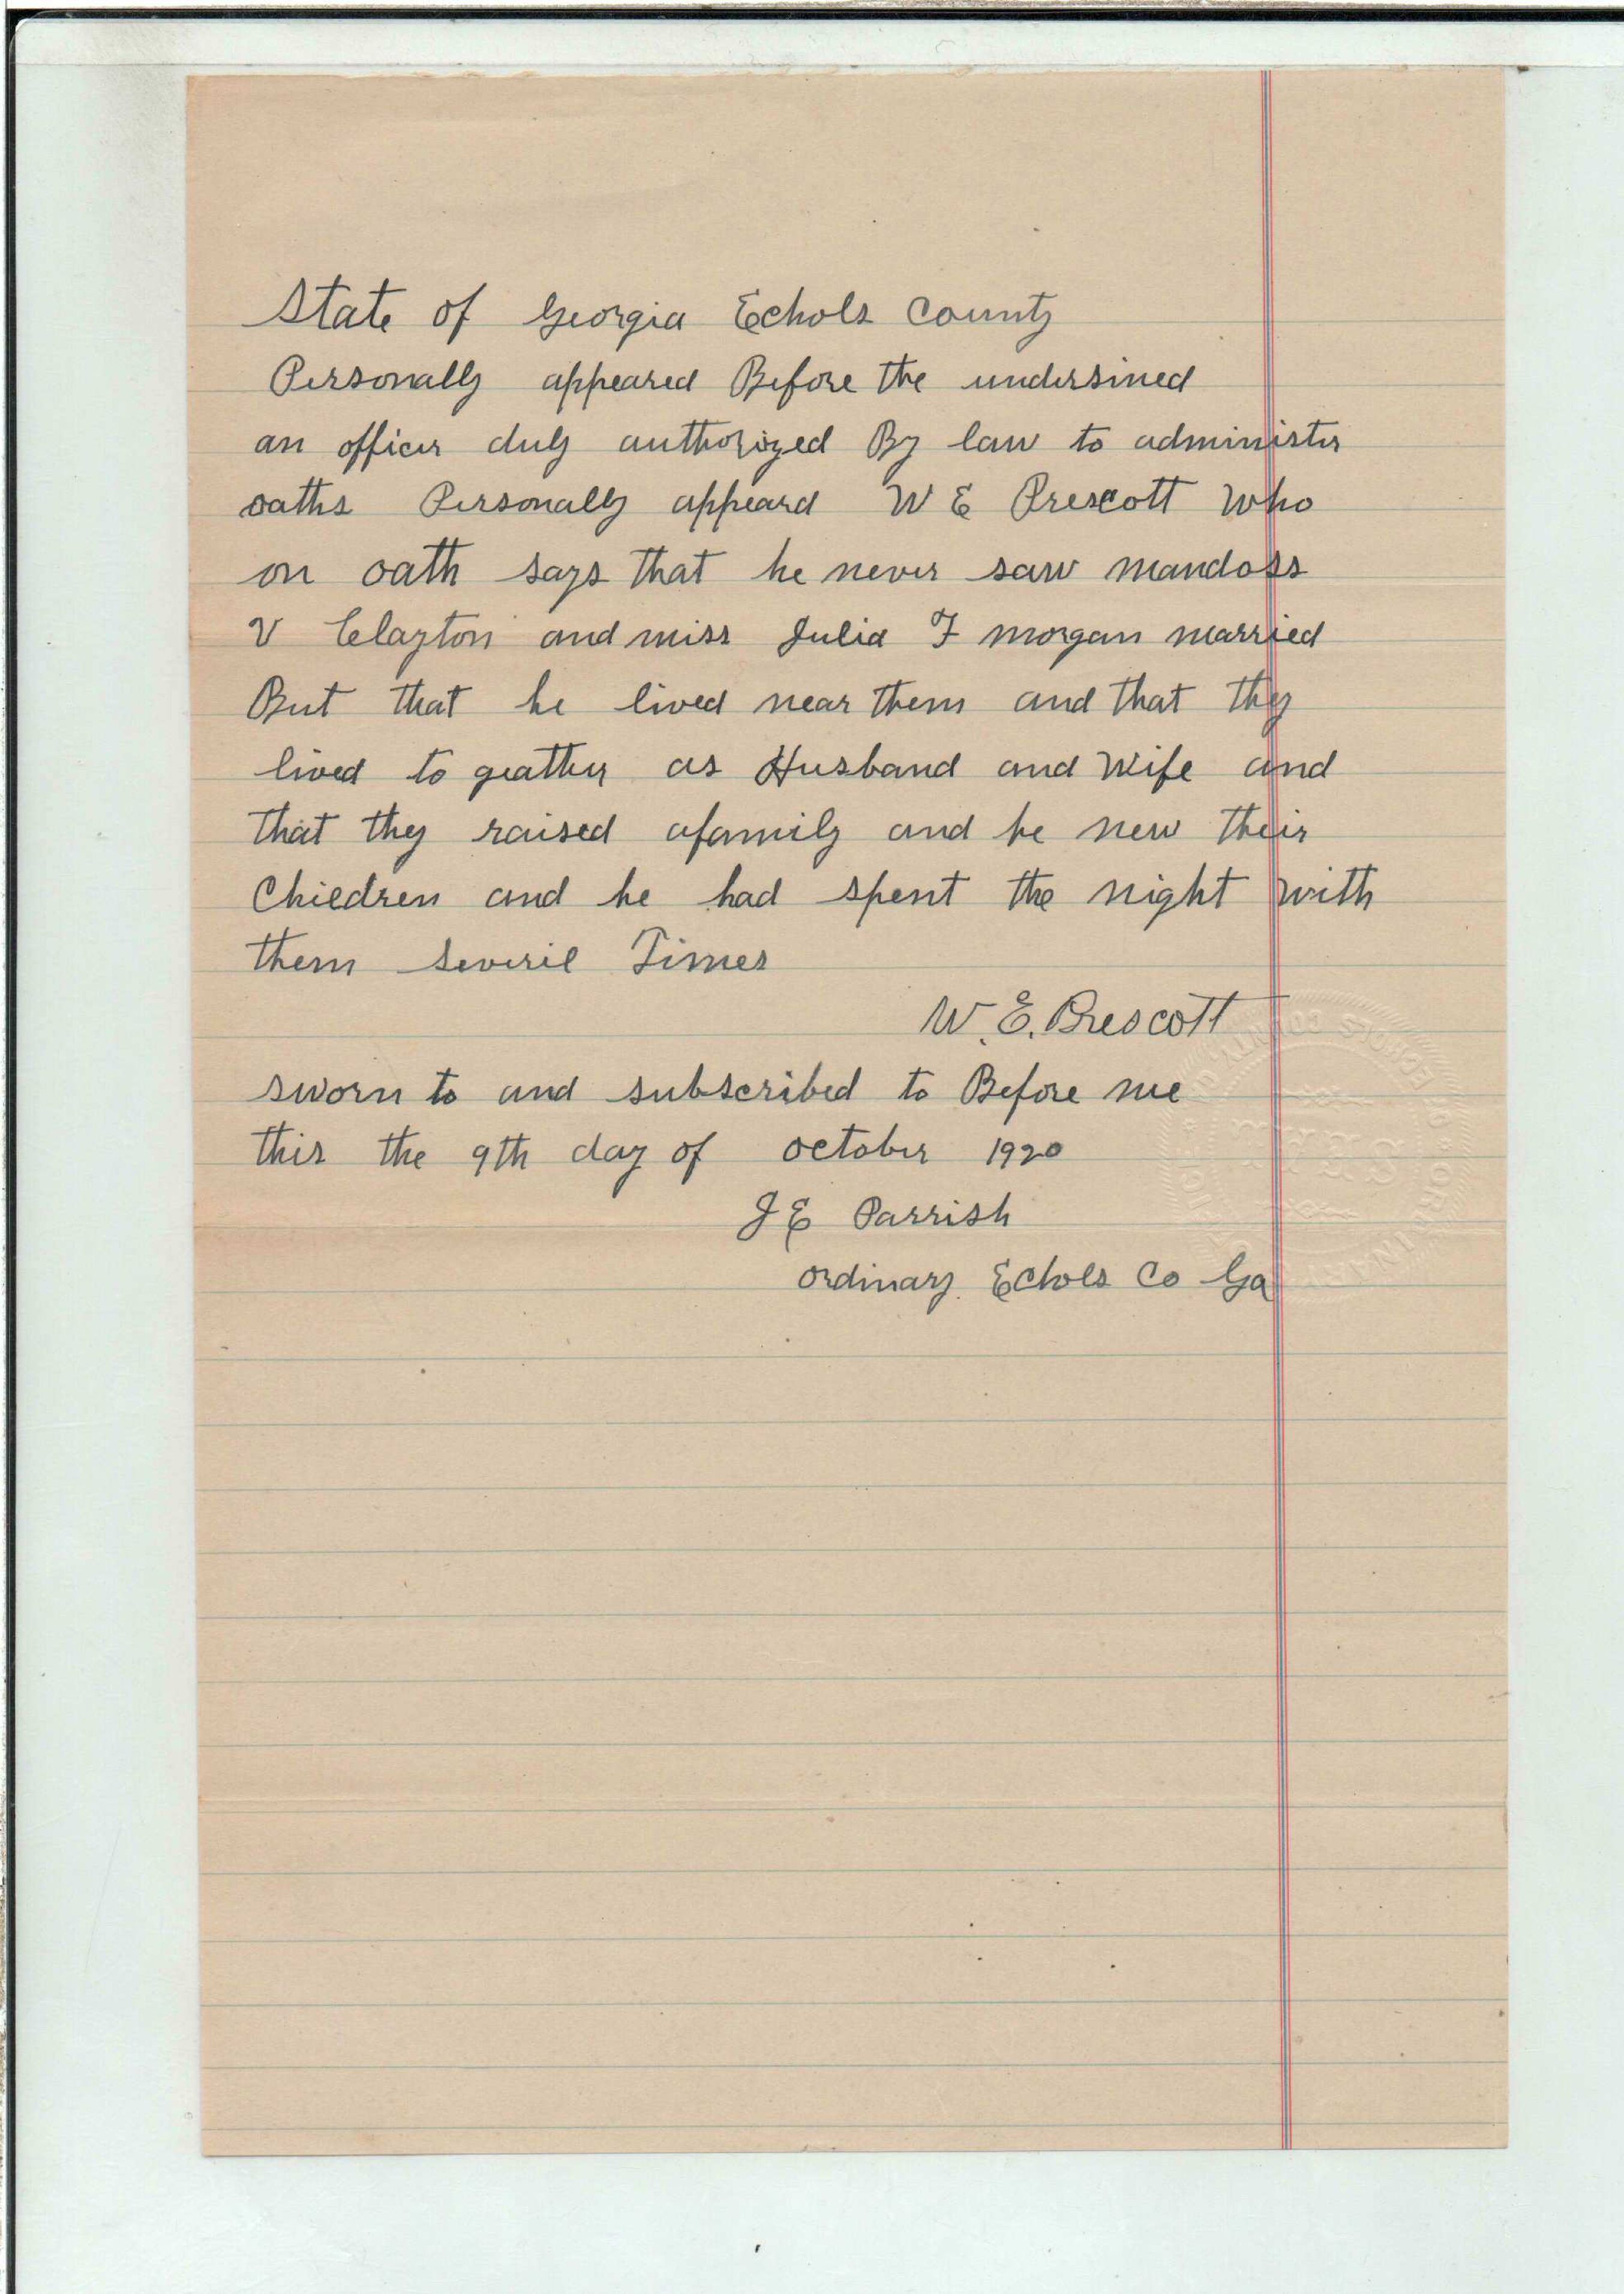 State of Georgia Echols County
Personally appeared Before the undersined
an officer duly authorized By law to administer
oaths Personally appeard W E Prescott Who
on oath says that he never saw mandoss
V Clayton and miss Julia F morgan married
But that he lived near them and that they
lived to geather as Husband and Wife and
that they raised afamily and he new their
Children and he had spent the night with
them severil Times
W. E. Prescott
sworn to and subscribed to Before me
this the 9th day of october 1920
J E Parrish
ordinary Echols Co Ga